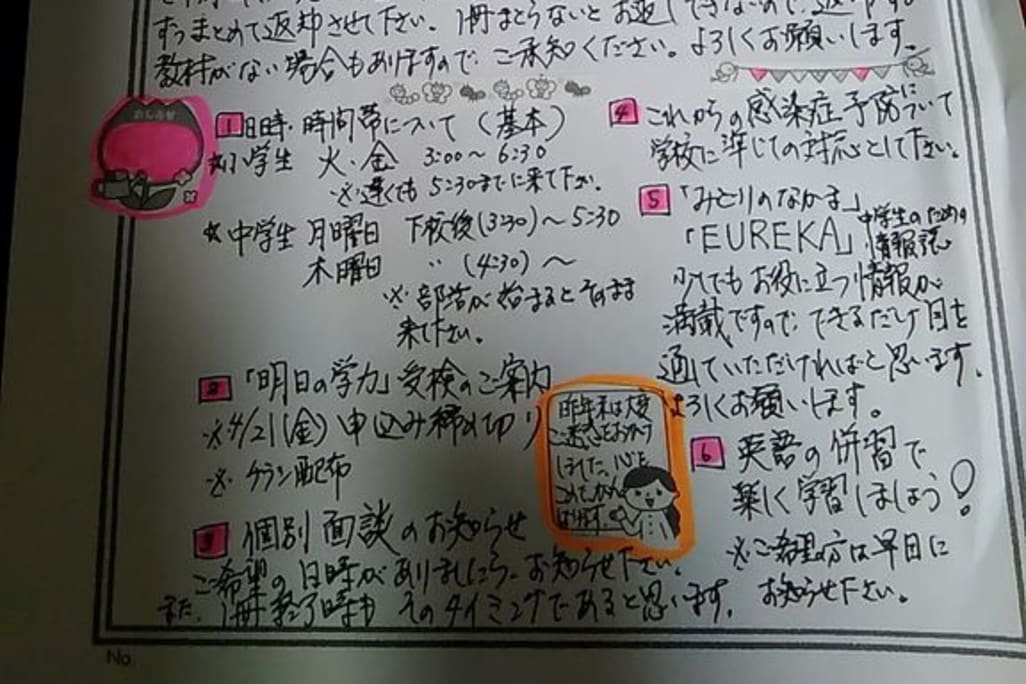 ずつまとめて返却させて下さい。1冊まとらないとお返しできないので、
教材がない場合もありますので、ご承知ください。よろしくお願いします。
おしらせ
1 日時・時間帯について (基本)
★小学生 火・金 3:00〜6:30
※遅くても 5:30までに来て下さい。
★中学生 月曜日 下校後(3:30)〜5:30
木曜日 〃 (4:30)〜
※部活が始まるとそのまま
来て下さい。
2 「明日の学力」受検のご案内
※4/21(金)申込み締め切り
※チラシ配布
3 個別面談のお知らせ
ご希望の日時がありましたら、お知らせ下さい。
また、1冊終了時も そのタイミングであると思います。
昨年末は大変
ご迷惑をおかけ
しました。心を
こめて
4 これからの感染症予防について
学校に準じての対応として下さい。
5 「みどりのなかま」
「EUREKA」中学生のための
情報誌
お役に立つ情報が
満載ですので、できるだけ目を
通していただければと思います。
よろしくお願いします。
6 英語の併習で
楽しく学習しましょう!
※ご希望の方は早目に
お知らせ下さい。
No.